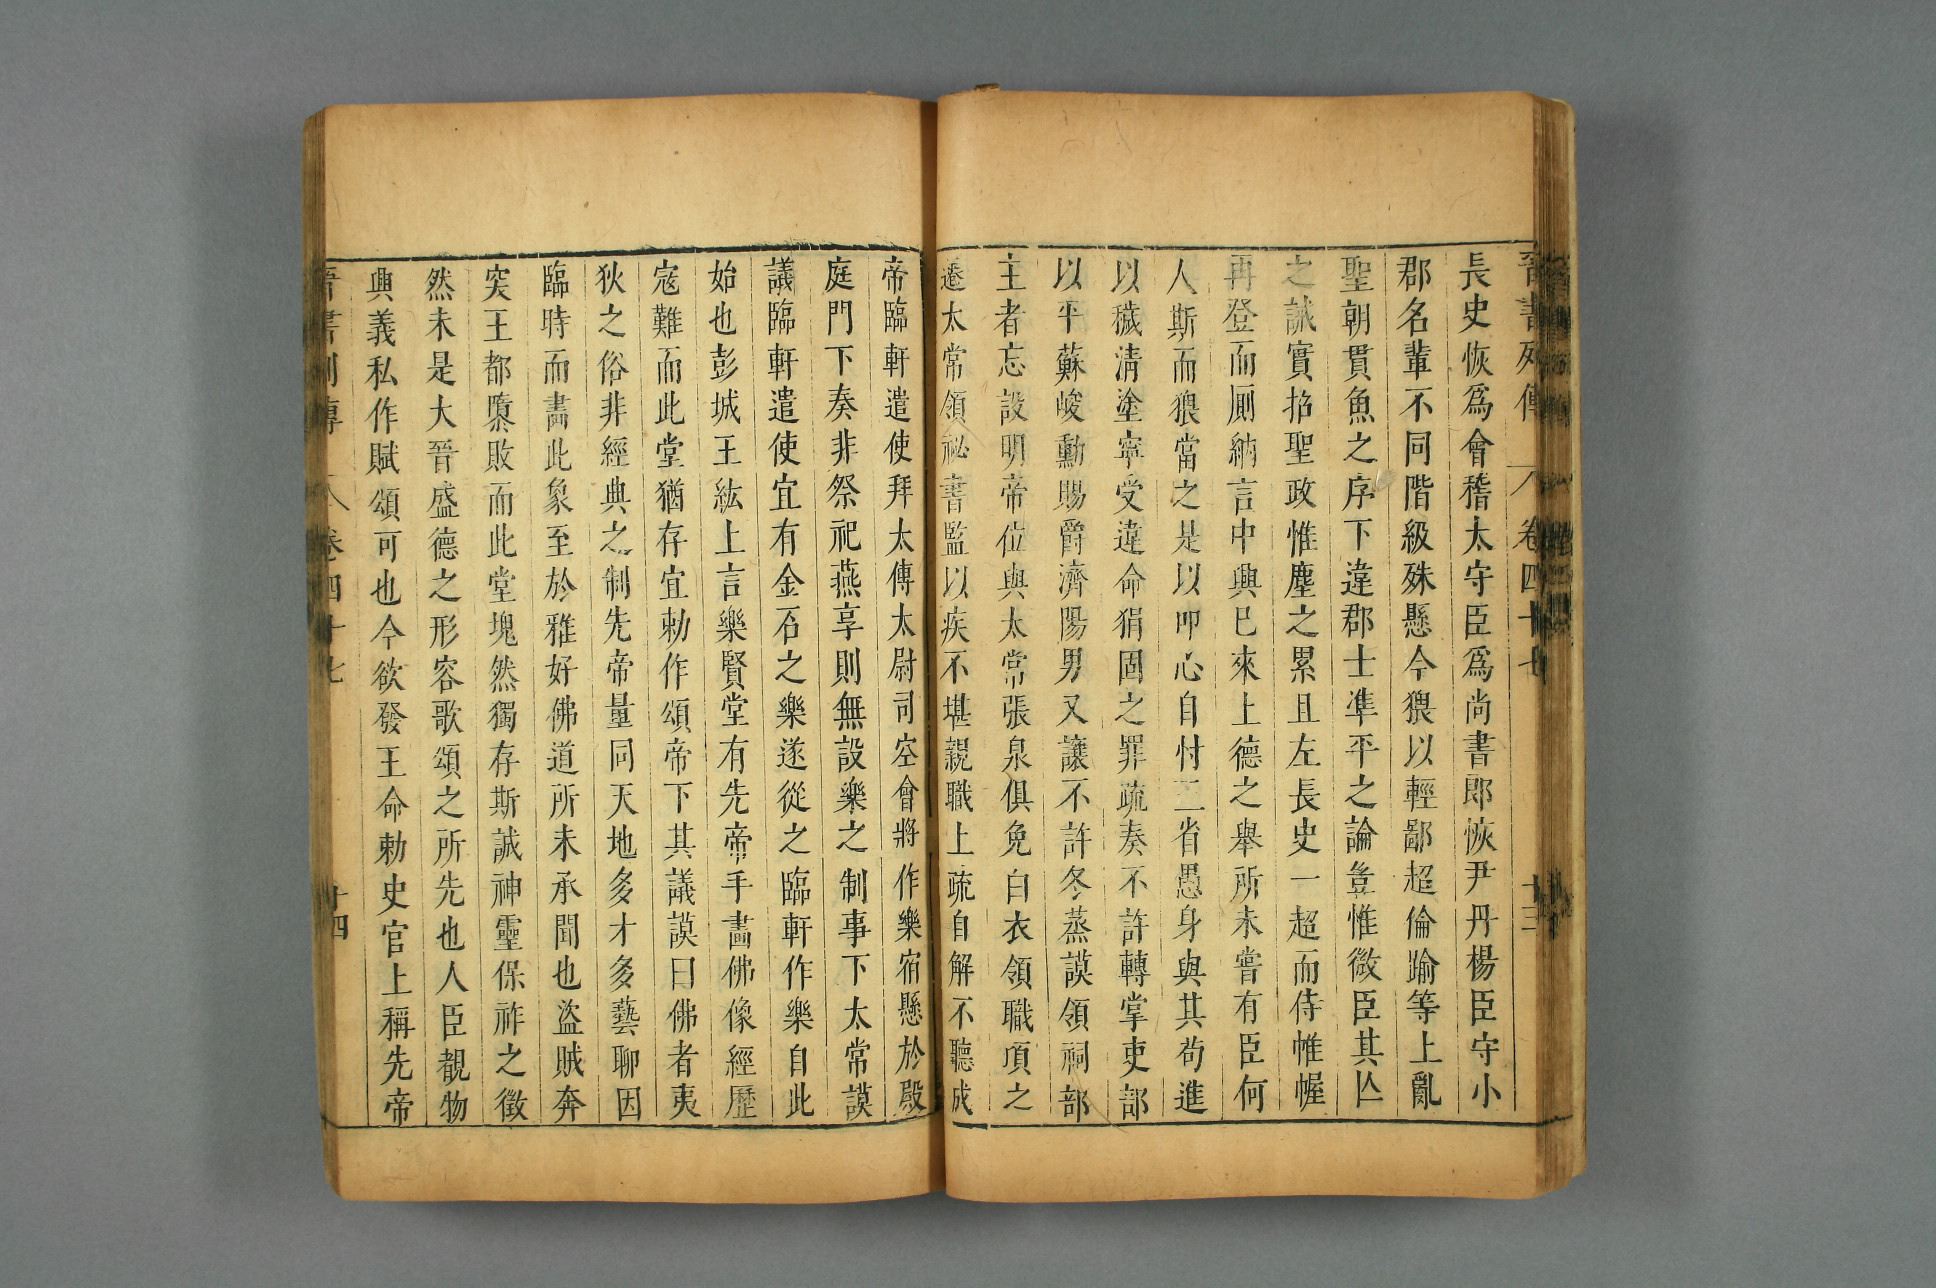 晉書列傳 卷四十七 十三
長史恢爲會稽太守臣爲尚書郎恢尹丹楊臣守小
郡名輩不同階級殊懸今猥以輕鄙超倫踰等上亂
聖朝貫魚之序下違郡士準平之論豈惟微臣其亡
之誠實招聖政惟塵之累且左長史一超而侍帷幄
再登而厠納言中興已來上德之舉所未嘗有臣何
人斯而猥當之是以叩心自忖三省愚身與其苟進
以穢清塗寧受違命狷固之罪疏奏不許轉掌吏部
以平蘇峻勳賜爵濟陽男又讓不許冬蒸謨領祠部
主者忘設明帝位與太常張泉俱免白衣領職頃之
遷太常領祕書監以疾不堪親職上疏自解不聽成
帝臨軒遣使拜太傅太尉司空會將作樂宿懸於殿
庭門下奏非祭祀燕享則無設樂之制事下太常謨
議臨軒遣使宜有金石之樂遂從之臨軒作樂自此
始也彭城王紘上言樂賢堂有先帝手畫佛像經歷
寇難而此堂猶存宜勅作頌帝下其議謨曰佛者夷
狄之俗非經典之制先帝量同天地多才多藝聊因
臨時而畫此象至於雅好佛道所未承聞也盜賊奔
突王都隳敗而此堂塊然獨存斯誠神靈保祚之徵
然未是大晉盛德之形容歌頌之所先也人臣覩物
興義私作賦頌可也今欲發王命勅史官上稱先帝
晉書列傳 卷四十七 十四